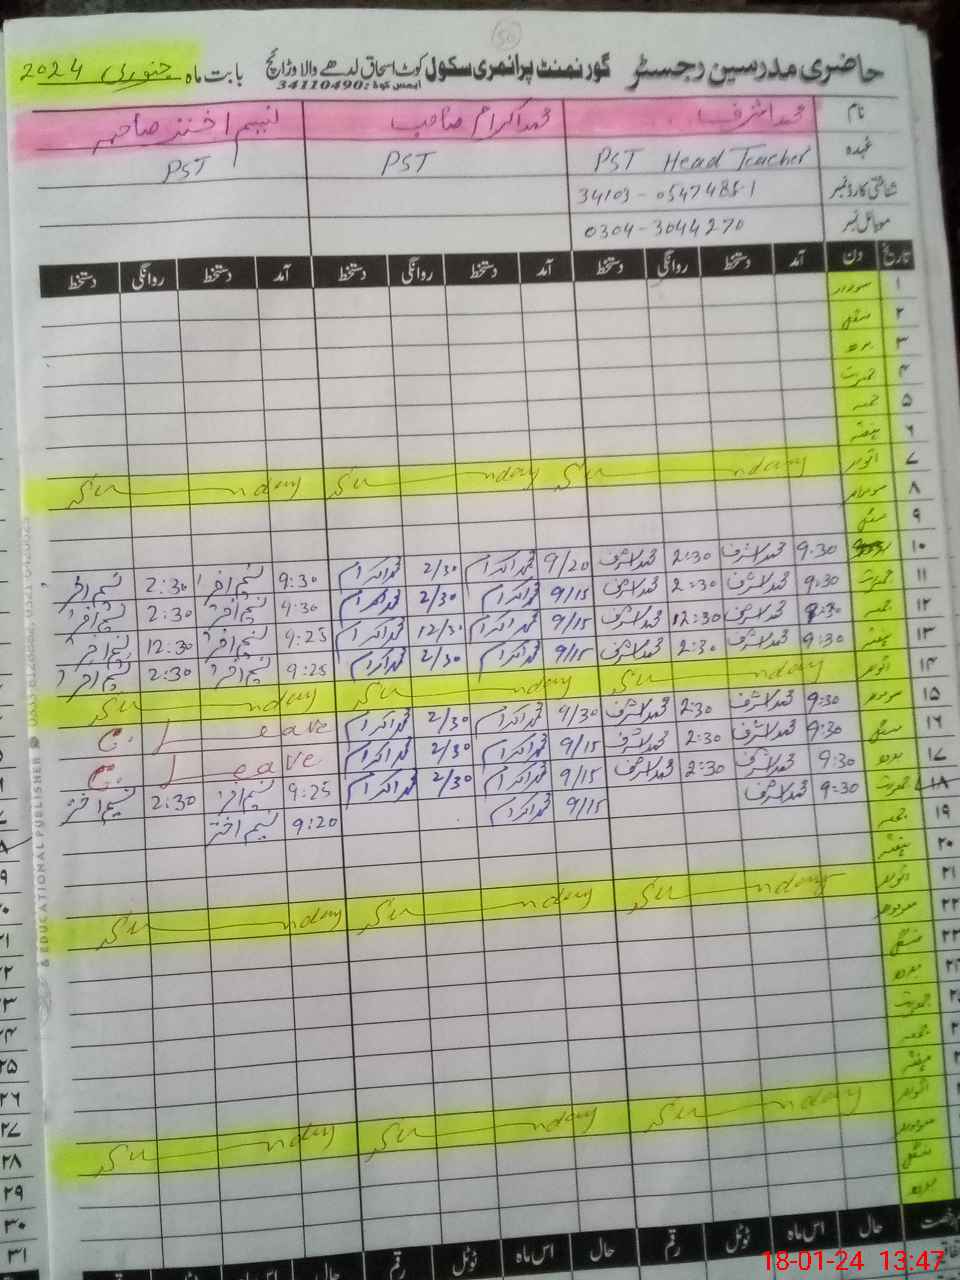 50
حاضری مدرسین رجسٹر گورنمنٹ پرائمری سکول کوٹ اسحاق لدھے والا وڑائچ بابت ماہ جنوری 2024
ایمس کوڈ: 34110490
نام محمد اشرف محمد اکرام صاحب نسیم اختر صاحبہ
عہدہ PST Head Teacher PST PST
شناختی کارڈ نمبر
موبائل نمبر 0304-3044270
تاریخ دن آمد دستخط روانگی دستخط آمد دستخط روانگی دستخط آمد دستخط روانگی دستخط
۱ سوموار
۲ منگل
۳ بدھ
۴ جمعرات
۵ جمعہ
۶ ہفتہ
۷ اتوار Sunday Sunday Sunday
۸ سوموار
۹ منگل
۱۰ 9:30 محمد اشرف 2:30 محمد اشرف 9/20 محمد اکرام 2/30 محمد اکرام 9:30 نسیم اختر 2:30 نسیم اختر
۱۱ جمعرات 9:30 محمد اشرف 2:30 محمد اشرف 9/15 محمد اکرام 2/30 محمد اکرام 9:30 نسیم اختر 2:30 نسیم اختر
۱۲ جمعہ 9:30 محمد اشرف 12:30 محمد اشرف 9/15 محمد اکرام 12/30 محمد اکرام 9:25 نسیم اختر 12:30 نسیم اختر
۱۳ ہفتہ 9:30 محمد اشرف 2:30 محمد اشرف 9/15 محمد اکرام 2/30 محمد اکرام 9:25 نسیم اختر 2:30 نسیم اختر
۱۴ اتوار Sunday Sunday Sunday
۱۵ سوموار 9:30 محمد اشرف 2:30 محمد اشرف 9/30 محمد اکرام 2/30 محمد اکرام C. Leave
۱۶ منگل 9:30 محمد اشرف 2:30 محمد اشرف 9/15 محمد اکرام 2/30 محمد اکرام C. Leave
۱۷ بدھ 9:30 محمد اشرف 2:30 محمد اشرف 9/15 محمد اکرام 2/30 محمد اکرام 9:25 نسیم اختر 2:30 نسیم اختر
۱۸ جمعرات 9:30 محمد اشرف 9/15 محمد اکرام 9:20 نسیم اختر
۱۹ جمعہ
۲۰ ہفتہ
۲۱ اتوار Sunday Sunday Sunday
۲۲ سوموار
۲۳ منگل
۲۴ بدھ
جمعرات
جمعہ
ہفتہ
اتوار Sunday Sunday Sunday
سوموار
منگل
بدھ
رخصت حال اس ماہ ٹوٹل رقم حال اس ماہ ٹوٹل رقم حال اس ماہ ٹوٹل
& EDUCATIONAL PUBLISHER
۲۱
۲۲
۲۳
۲۴
۲۵
۲۶
۲۷
۲۸
۲۹
۳۰
۳۱
18-01-24 13:47